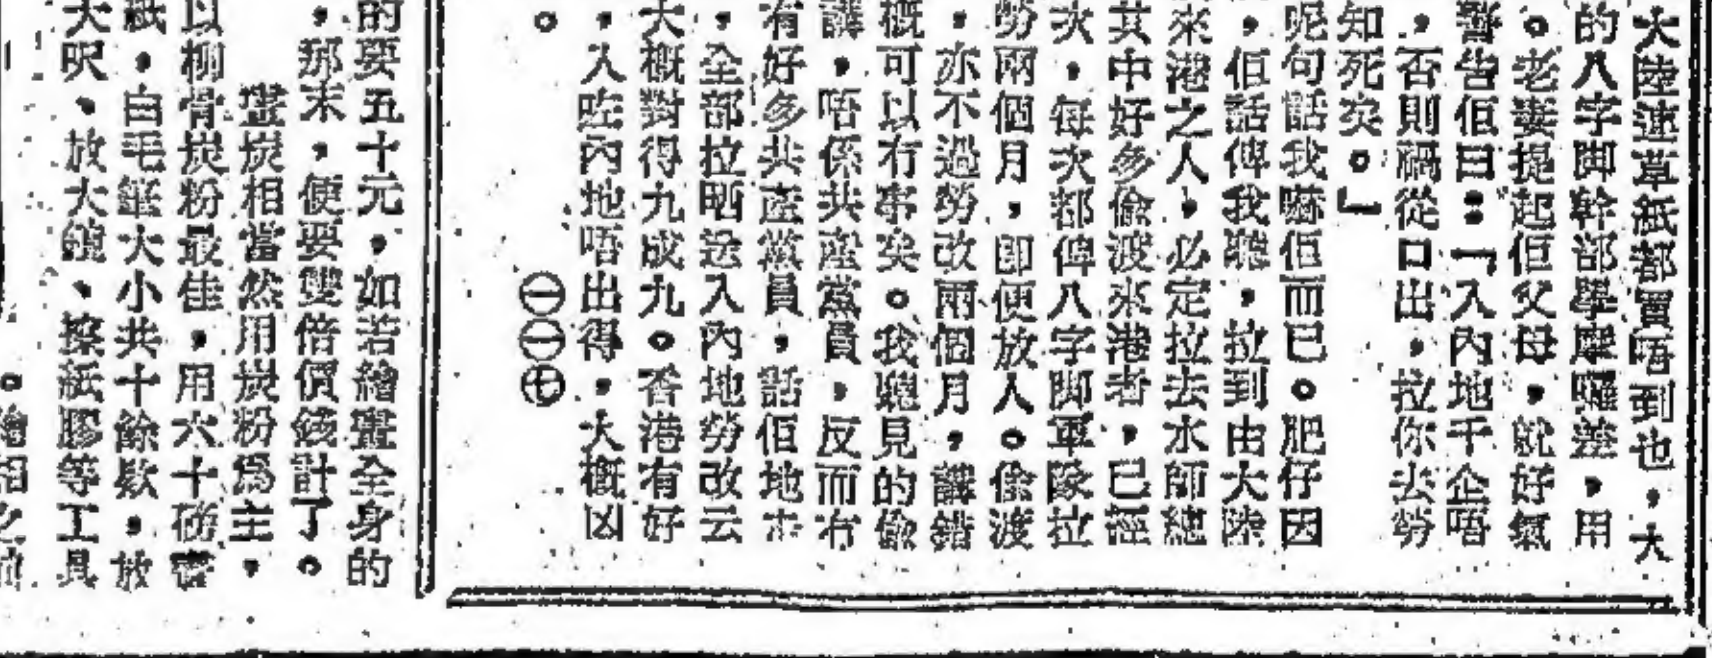 大陸連草紙都買唔到也，大
的八字脚幹部學壓囉差，用
。老妻提起佢父母，就好氣
警告佢曰：「入內地千企唔
，否則禍從口出，拉你去勞
知死矣。」
呢句話我嚇佢而已。肥仔因
，佢話俾我聽，拉到由大陸
來港之人，必定拉去水師總
其中好多偷渡來港者，已經
次，每次都俾八字脚軍隊拉
勞兩個月，即便放人。偷渡
，亦不過勞改兩個月，講錯
概可以冇事矣。我聽見的偷
講，唔係共產黨員，反而冇
有好多共產黨員，話佢地
，全部拉晒送入內地勞改云
大概對得九成九。香港有好
，入咗內地唔出得，大概凶
。 ㊀㊀㊆
的要五十元，如若繪畫全身的
，那末，便要雙倍價錢計了。
畫炭相當然用炭粉爲主，
以柳骨炭粉最佳，用六十磅
紙，白毛筆大小共十餘欵，放
大呎、放大鏡、擦紙膠等工具
。繪相之前